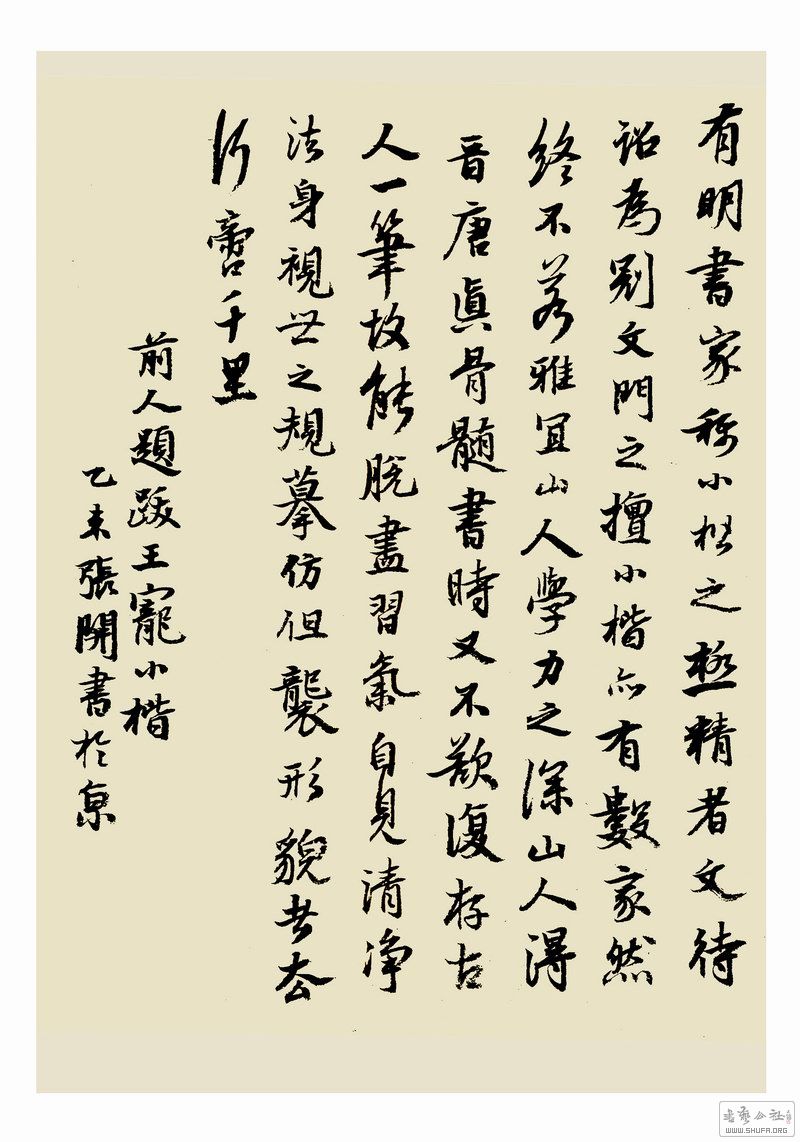 有明書家稱小楷之極精者文待
詔為别文門之擅小楷亦有數家然
終不若雅宜山人學力之深山人得
晉唐眞骨髓書時又不欲復存古
人一筆故能脫盡習氣自見清净
法身視世之規摹仿但襲形貌者去
何啻千里
前人題跋王寵小楷
乙未張開書於京
書藝公社
WWW.SHUFA.ORG